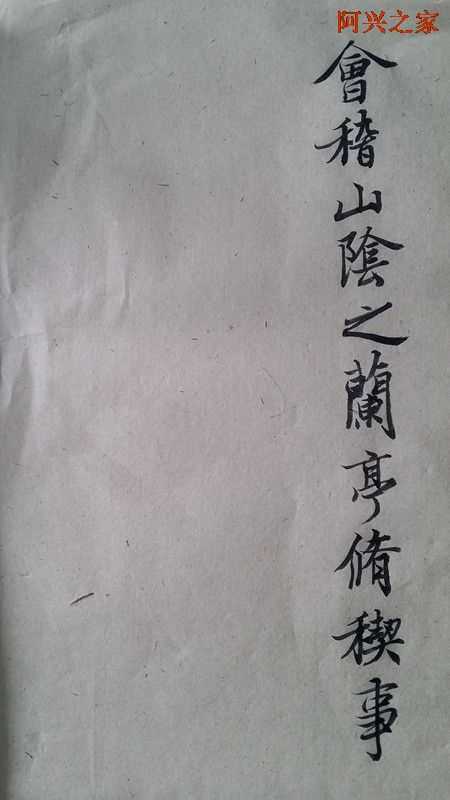 阿兴之家
會稽山陰之蘭亭脩稧事